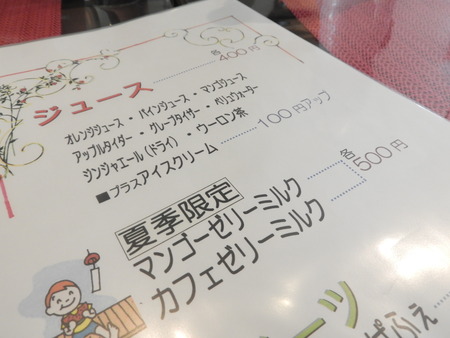 ジュース 各400円
オレンジジュース・パインジュース・マンゴジュース
アップルタイザー・グレープタイザー・ペリエウォーター
ジンジャエール(ドライ)・ウーロン茶
■プラスアイスクリーム 100円アップ
夏季限定
マンゴーゼリーミルク 各500円
カフェゼリーミルク
ーツ
ぱふぇ